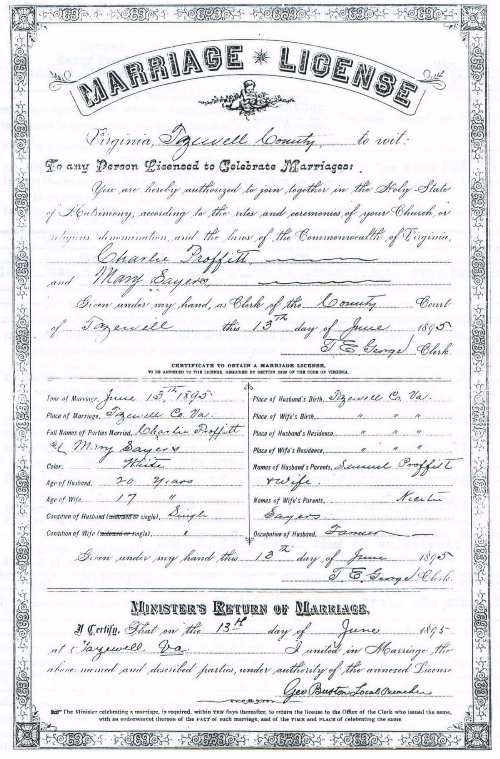 MARRIAGE LICENSE
Virginia, Tazewell County, to wit:
To any Person Licensed to Celebrate Marriages:
You are hereby authorized to join together in the Holy State
of Matrimony, according to the rites and ceremonies of your Church, or
religious denomination, and the laws of the Commonwealth of Virginia,
Charlie Proffitt
and Mary Sayers
Given under my hand, as Clerk of the County Court
of Tazewell this 13th day of June 1895
T. E. George Clerk.
CERTIFICATE TO OBTAIN A MARRIAGE LICENSE,
TO BE ANNEXED TO THE LICENSE, REQUIRED BY SECTION 2229 OF THE CODE OF VIRGINIA.
Time of Marriage, June 13th 1895
Place of Marriage, Tazewell Co. Va.
Full Names of Parties Married, Charlie Proffitt
& Mary Sayers
Color, White
Age of Husband, 20 Years
Age of Wife, 17 "
Condition of Husband (widowed or single), Single
Condition of Wife (widowed or single), "
Place of Husband's Birth, Tazewell Co. Va.
Place of Wife's Birth, " " "
Place of Husband's Residence, " " "
Place of Wife's Residence, " " "
Names of Husband's Parents, Samuel Proffitt
& Wife
Names of Wife's Parents,
Sayers
Occupation of Husband, Farmer
Given under my hand this 13th day of June 1895
T. E. George Clerk.
MINISTER'S RETURN OF MARRIAGE.
I Certify, That on the 13th day of June 1895
at Tazewell Va. I united in Marriage the
above named and described parties, under authority of the annexed License
Geo Buston Local Preacher
The Minister celebrating a marriage, is required, within TEN days thereafter, to return the license to the Office of the Clerk who issued the same,
with an endorsement thereon of the FACT of such marriage, and of the TIME and PLACE of celebrating the same